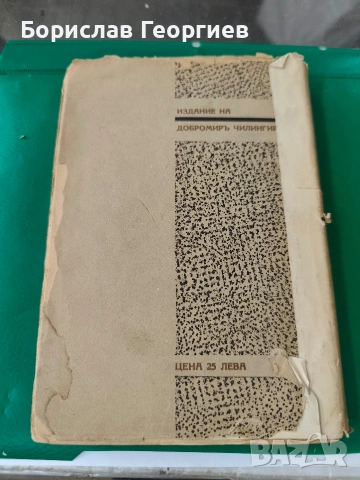 Борислав Георгиев
ИЗДАНИЕ НА
ДОБРОМИРЪ
ЦЕНА 25 ЛЕВА
BAZAR